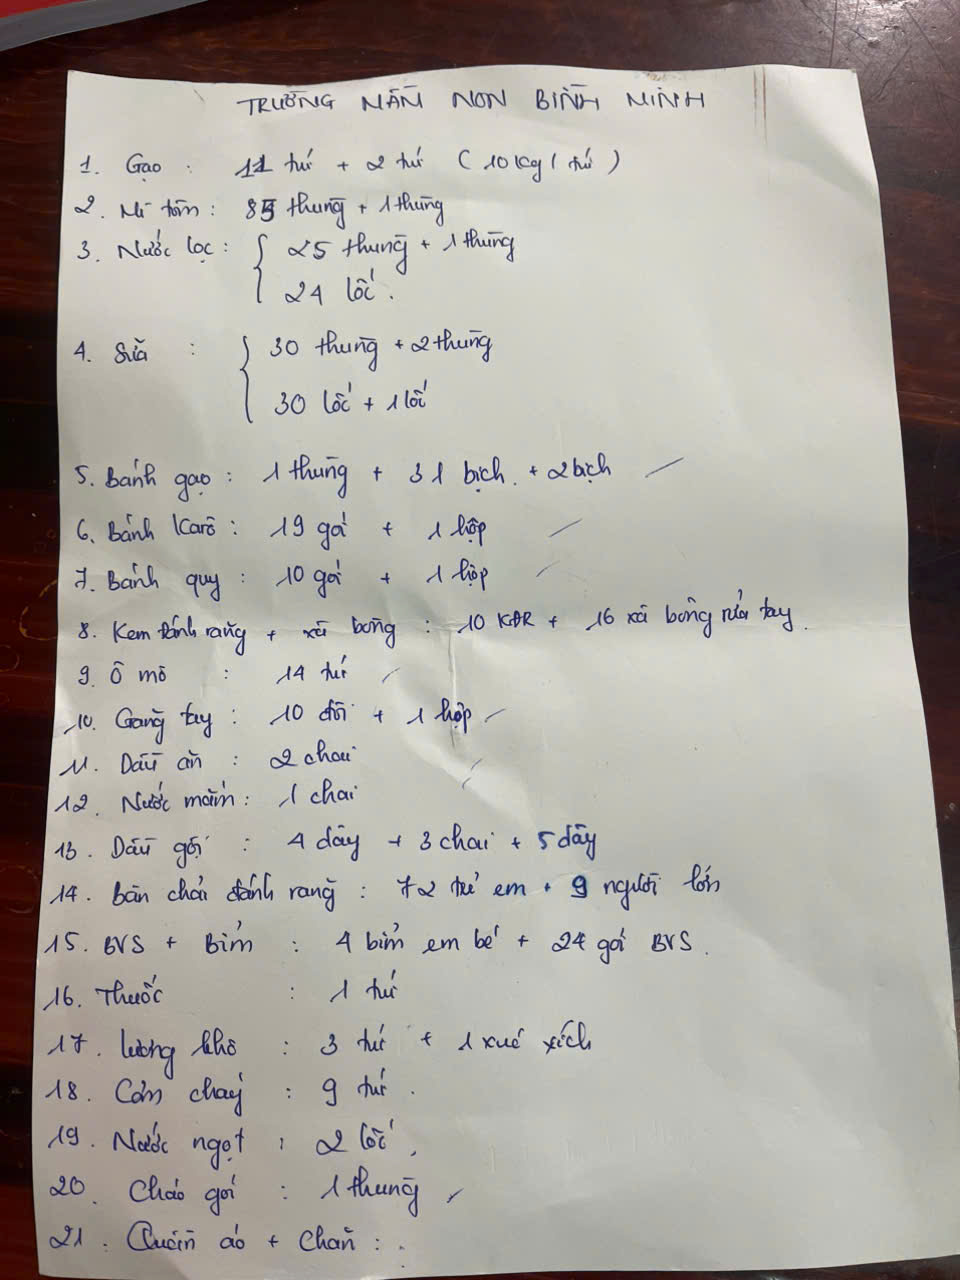 TRƯỜNG MẦM NON BÌNH MINH
1. Gạo : 11 túi + 2 túi ( 10 kg / túi )
2. Mì tôm : 85 thùng + 1 thùng
3. Nước lọc : 25 thùng + 1 thùng
24 lốc .
4. Sữa : 30 thùng + 2 thùng
30 lốc + 1 lốc
5. Bánh gạo : 1 thùng + 31 bịch . + 2 bịch
6. Bánh Karô : 19 gói + 1 hộp
7. Bánh quy : 10 gói + 1 hộp
8. Kem đánh răng + xà bông : 10 KĐR + 16 xà bông rửa tay .
9. Ô mô : 14 túi
10. Găng tay : 10 đôi + 1 hộp
11. Dầu ăn : 2 chai
12. Nước mắm : 1 chai
13. Dầu gội : 4 dây + 3 chai + 5 dây
14. Bàn chải đánh răng : 72 trẻ em + 9 người lớn
15. BVS + Bỉm : 4 bỉm em bé + 24 gói BVS .
16. Thuốc : 1 túi
17. lương khô : 3 túi + 1 xúc xích
18. Cơm cháy : 9 túi .
19. Nước ngọt : 2 lốc .
20. Cháo gói : 1 thùng
21. Quần áo + Chăn : .